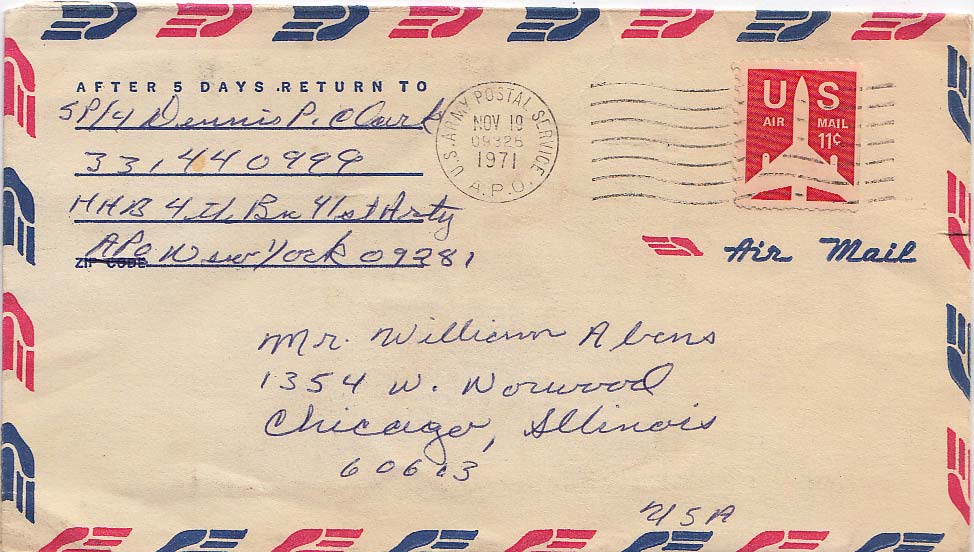 AFTER 5 DAYS RETURN TO
SP/4 Dennis P. Clark
331440999
HHB 4th Bn 41st Arty
APO New York 09381
ZIP CODE
U.S. ARMY POSTAL SERVICE
NOV 19
1971
A.P.O.
US
AIR MAIL
11¢
Air Mail
Mr. William Abens
1354 W. Norwood
Chicago, Illinois
60613
USA